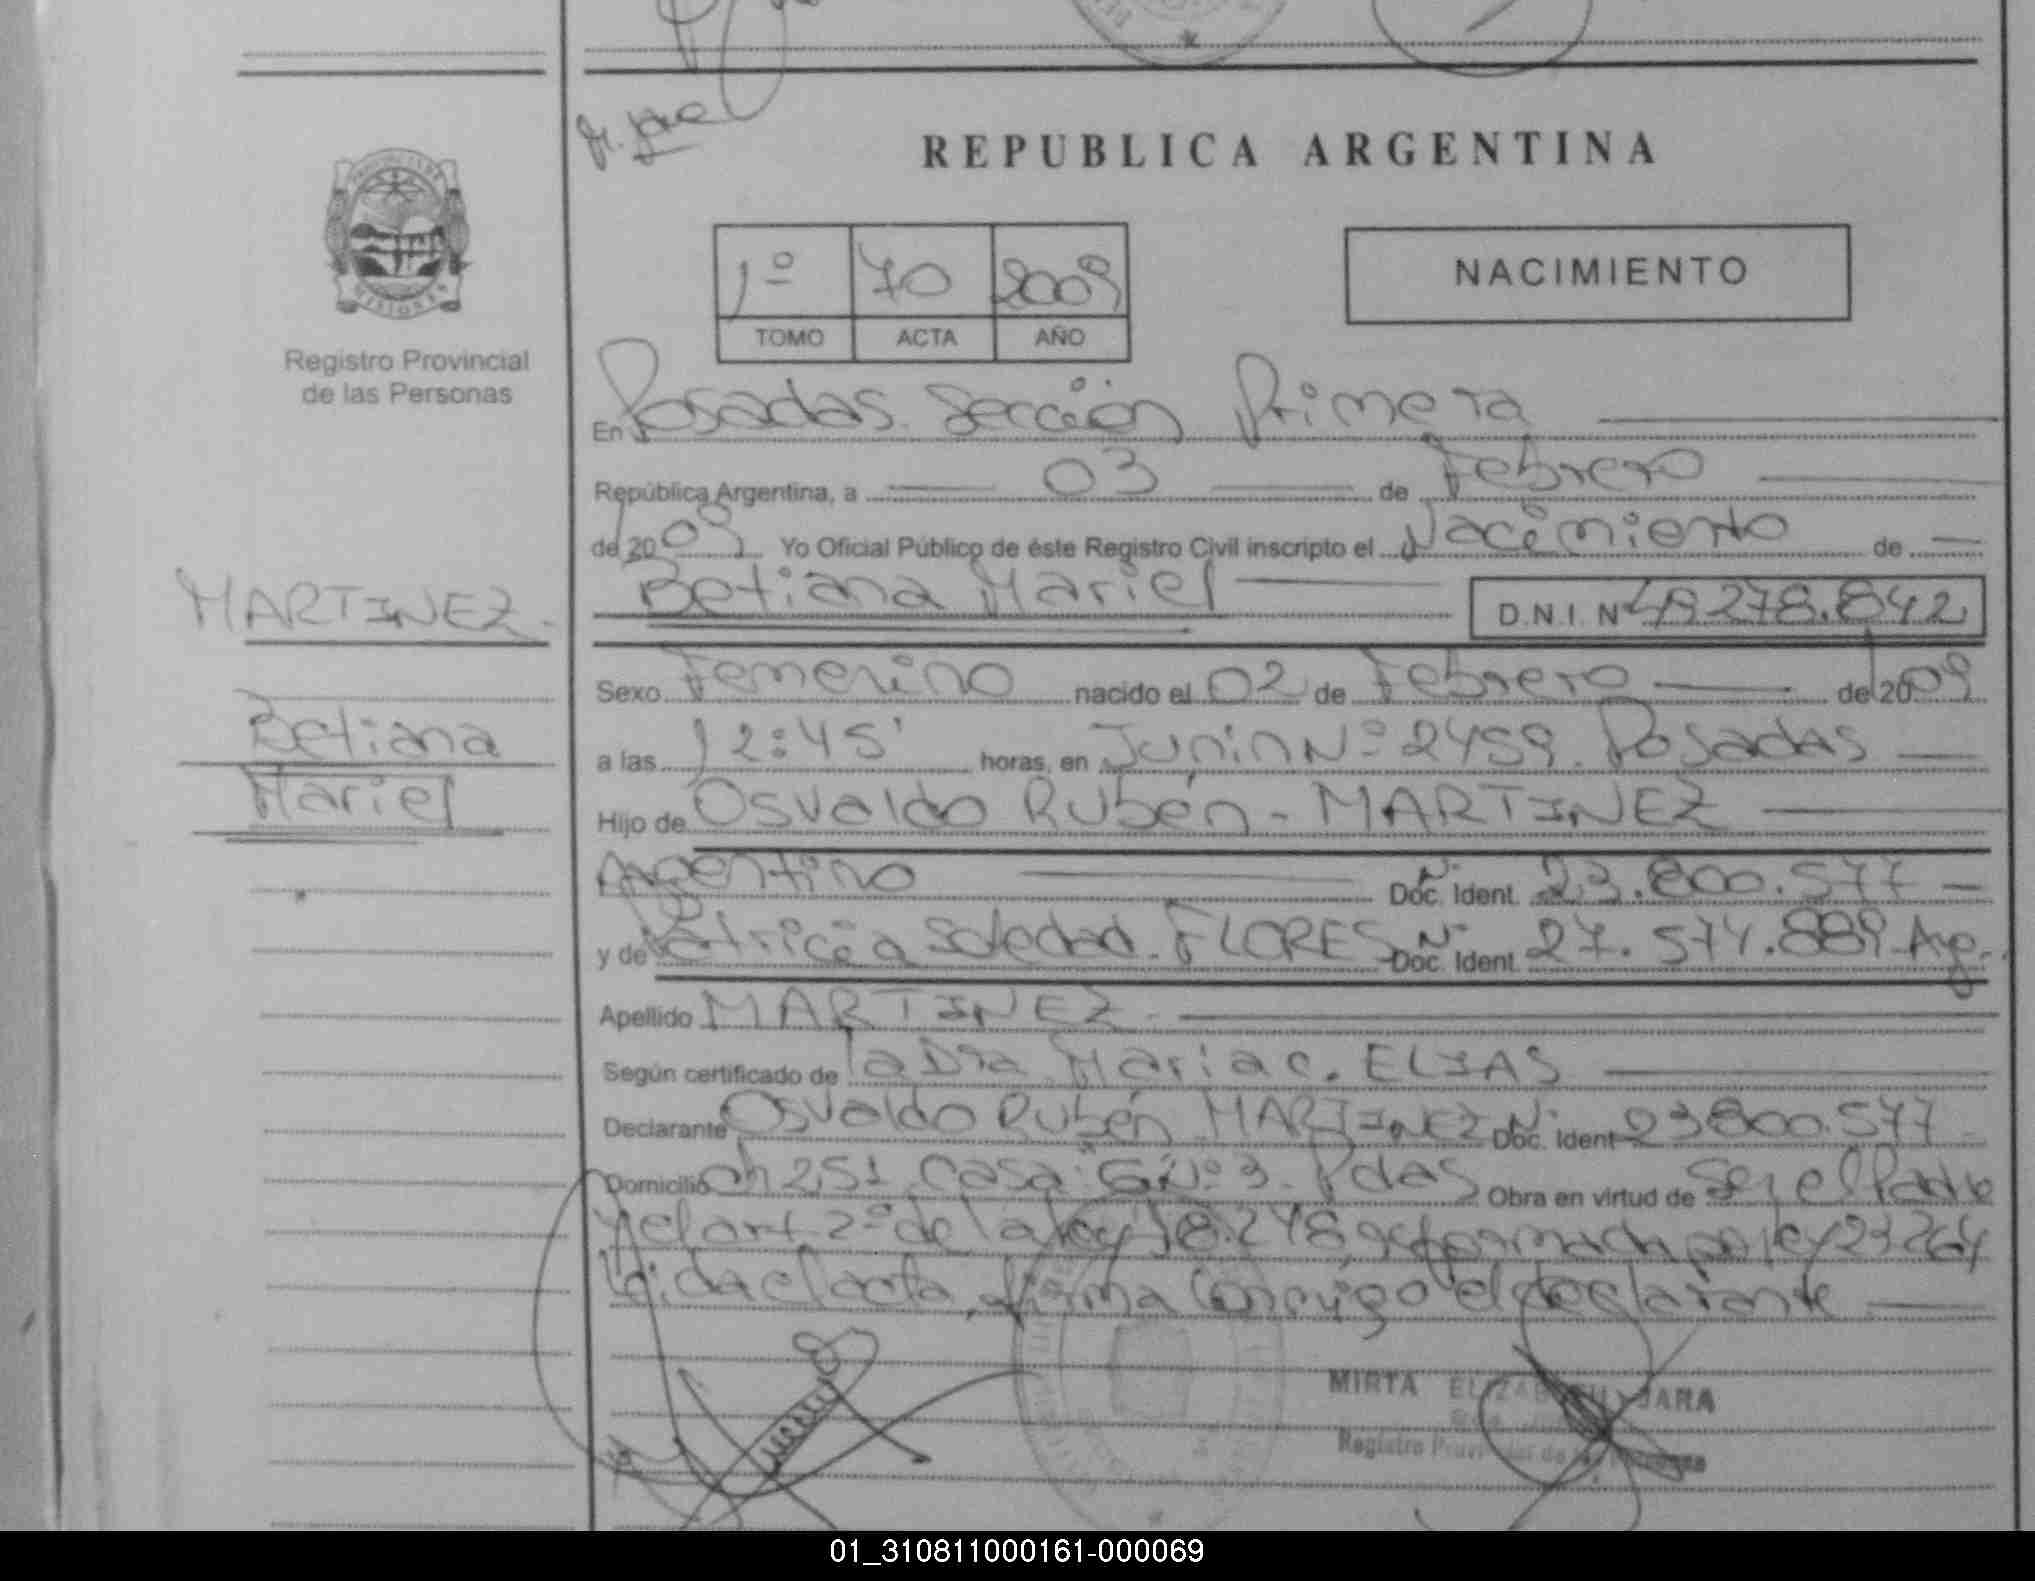 REPUBLICA ARGENTINA
PROVINCIA DE
MISIONES
Registro Provincial
de las Personas
1º 70 2009
TOMO ACTA AÑO
NACIMIENTO
En Posadas. Sección Primera
República Argentina, a 03 de Febrero
de 2009 Yo Oficial Público de éste Registro Civil inscripto el Nacimiento de
Betiana Mariel D.N.I. Nº 49.278.842
MARTINEZ.
Betiana
Mariel
Sexo Femenino nacido el 02 de Febrero de 2009
a las 12:45' horas, en Junin Nº 2459. Posadas
Hijo de Osvaldo Rubén - MARTINEZ
Argentino Doc. Ident. Nº 23.800.577
y de Patricia Soledad. FLORES Doc. Ident. Nº 27.574.889 Arg.
Apellido MARTINEZ.
Según certificado de la Dra. Maria C. ELIAS
Declarante Osvaldo Rubén MARTINEZ Doc. Ident Nº 23800.577
Domicilio Ch 251 Casa Nº 3. Pdas Obra en virtud de Ser el Padre
y el art. 2º de la ley 18.248 reformada por ley 23264
Leida el acta, firma conmigo el declarante
MIRTA ELIZABETH JARA
Registro Provincial de las Personas
01_310811000161-000069